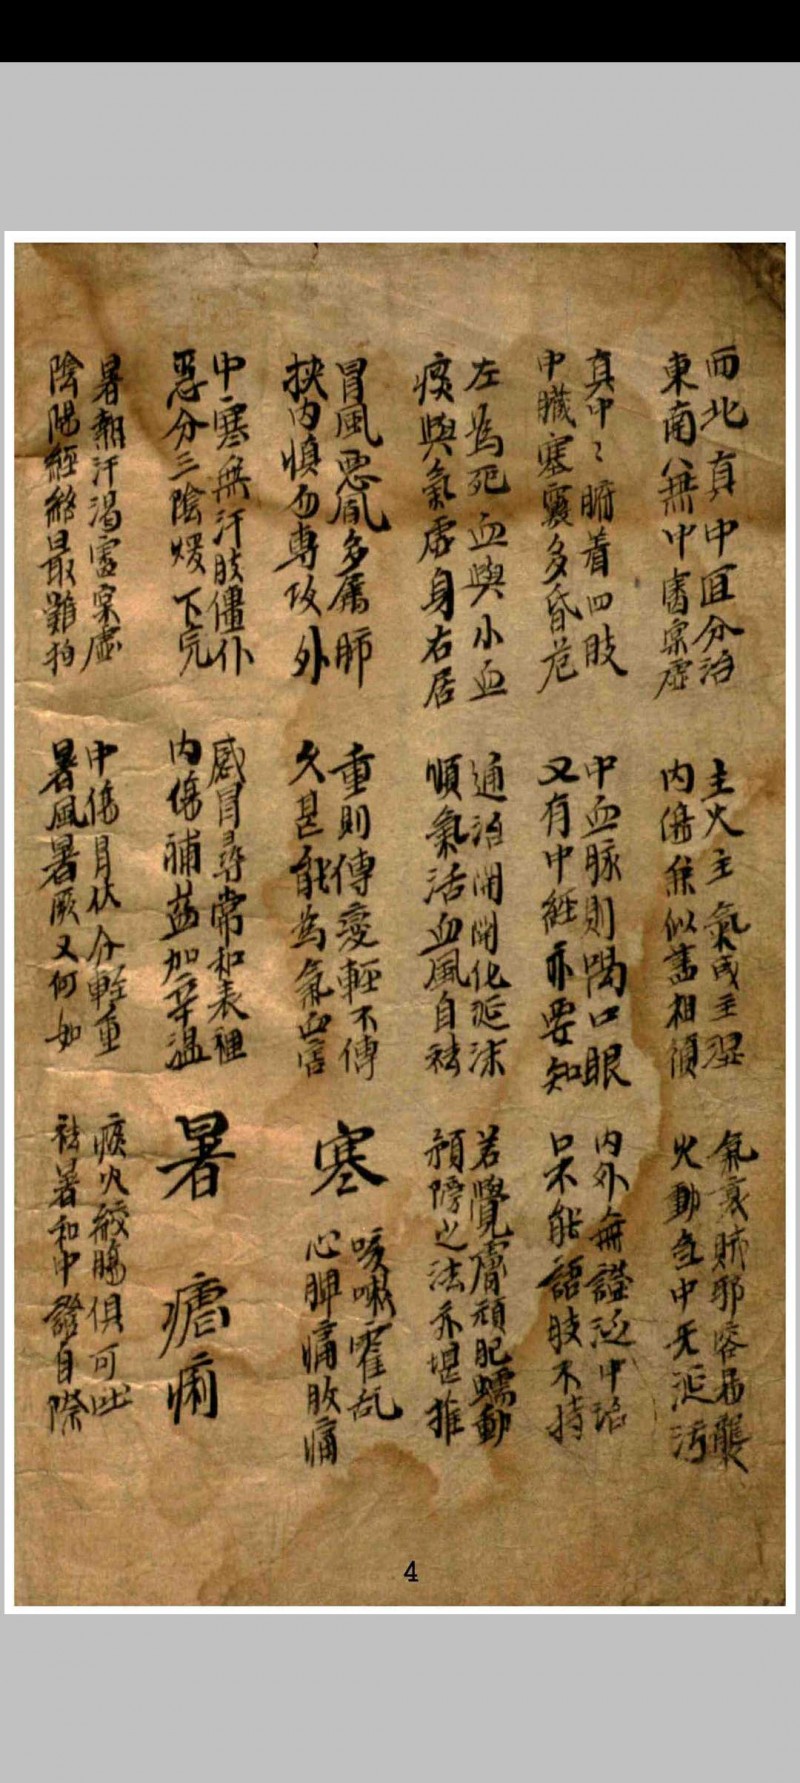 西北真中宜分治
東南中審禀虛
主火主氣或主濕
內傷兼似書相須
氣衰賊邪容易襲
火動急中无涎污
真中〻腑着四肢
中臟塞竅多昏危
中血脉則喎口眼
又有中經亦要知
內外無證泛中
口不能語肢不持
左為死血與小血
痰與氣虛身右居
通治開關化涎沫
順氣活血風自祛
若覺膚頑肥蠕動
預防之法亦堪推
冒風惡風多屬肺
挾內慎勿專攻外
重則傳變輕不傳
久甚能為氣血害
寒
咳嗽霍乱
心脾痛腹痛
中寒無汗肢僵仆
惡分三陰煖下完
感冒尋常和表裡
內傷補益加辛溫
暑
瘧痢
暑熱汗渴審禀虛
陰陽經絡最難拘
中傷冒伏分輕重
暑風暑厥又何如
痰火絞腸俱可吐
祛暑和中證自際
4